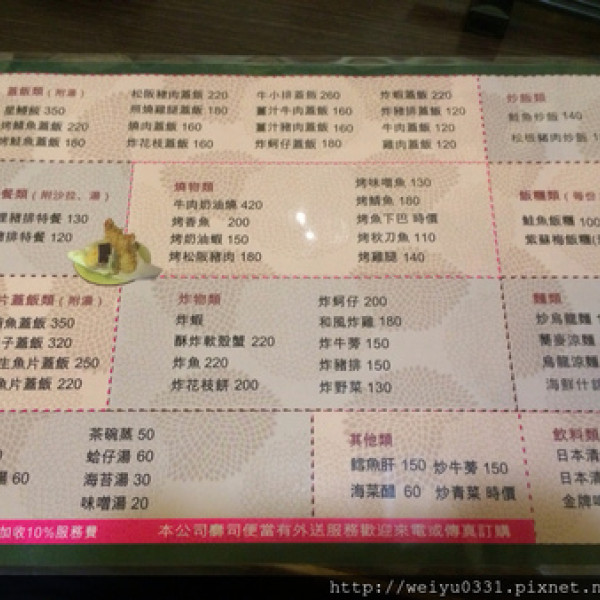 蓋飯類（附湯）
星鰻飯 350
烤鯖魚蓋飯 220
烤鮭魚蓋飯 180
松阪豬肉蓋飯 220
照燒雞腿蓋飯 180
燒肉蓋飯 160
炸花枝蓋飯 180
牛小排蓋飯 260
薑汁牛肉蓋飯 160
薑汁豬肉蓋飯 160
炸蚵仔蓋飯 180
炸蝦蓋飯 220
炸豬排蓋飯 120
牛肉蓋飯 120
雞肉蓋飯 120
炒飯類
鮭魚炒飯 140
松板豬肉炒飯
餐類（附沙拉、湯）
豬排特餐 130
排特餐 120
燒物類
牛肉奶油燒 420
烤香魚 200
烤奶油蝦 150
烤松阪豬肉 180
烤味噌魚 130
烤鯖魚 180
烤魚下巴 時價
烤秋刀魚 110
烤雞腿 140
飯糰類（每份
鮭魚飯糰 100
紫蘇梅飯糰
片蓋飯類（附湯）
魚蓋飯 350
子蓋飯 320
生魚片蓋飯 250
魚片蓋飯 220
炸物類
炸蝦
酥炸軟殼蟹 220
炸魚 220
炸花枝餅 200
炸蚵仔 200
和風炸雞 180
炸牛蒡 150
炸豬排 150
炸野菜 130
麵類
炒烏龍麵
蕎麥涼麵
烏龍涼麵
海鮮什
湯 60
茶碗蒸 50
蛤仔湯 60
海苔湯 30
味噌湯 20
其他類
鱈魚肝 150
海菜醋 60
炒牛蒡 150
炒青菜 時價
飲料類
日本清
日本清
金牌
加收10%服務費
本公司壽司便當有外送服務歡迎來電或傳真訂購
http://weiyu0331.pixnet.n